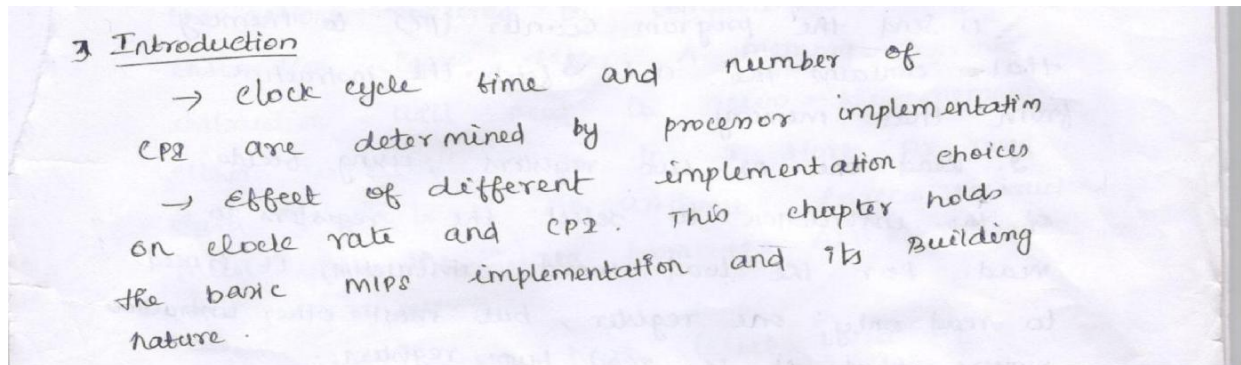 Introduction
→ clock cycle time and number of
CPI are determined by processor implementation
→ Effect of different implementation choices
on clock rate and CPI. This chapter holds
the basic MIPS implementation and its Building
nature.